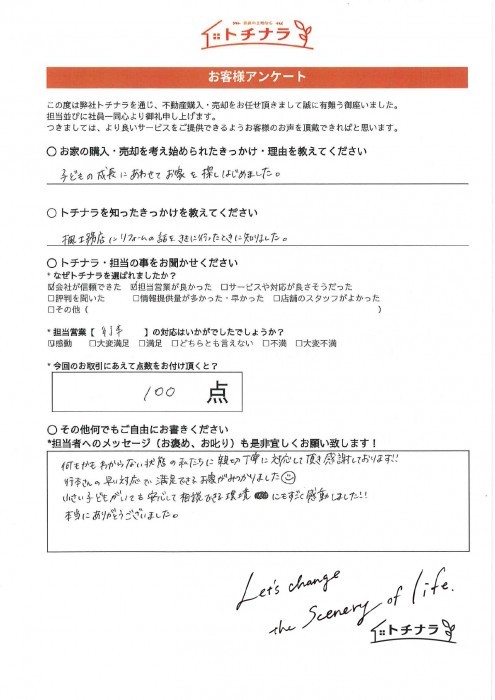 奈良の土地なら
トチナラ
お客様アンケート
この度は弊社トチナラを通じ、不動産購入・売却をお任せ頂きまして誠に有難う御座いました。
担当並びに社員一同心より御礼申し上げます。
つきましては、より良いサービスをご提供できるようお客様のお声を頂戴できればと思います。
〇 お家の購入・売却を考え始められたきっかけ・理由を教えてください
子どもの成長にあわせてお家を探しはじめました。
〇 トチナラを知ったきっかけを教えてください
楓工務店にリフォームの話をききに行ったときに知りました。
〇 トチナラ・担当の事をお聞かせください
* なぜトチナラを選ばれましたか？
☑会社が信頼できた ☑担当営業が良かった □サービスや対応が良さそうだった
□評判を聞いた □情報提供量が多かった・早かった □店舗のスタッフがよかった
□その他 ( )
* 担当営業【 行本 】の対応はいかがでしたでしょうか？
☑感動 □大変満足 □満足 □どちらとも言えない □不満 □大変不満
* 今回のお取引にあえて点数をお付け頂くと？
100 点
〇 その他何でもご自由にお書きください
*担当者へのメッセージ（お褒め、お叱り）も是非宜しくお願い致します！
何もかもわからない状態の私たちに親切丁寧に対応して頂き感謝しております!!
行本さんの早い対応で、満足できるお家がみつかりました
小さい子どもがいても安心して相談できる環境にもすごく感動しました!!
本当にありがとうございました。
Let's change
the Scenery of life.
トチナラ